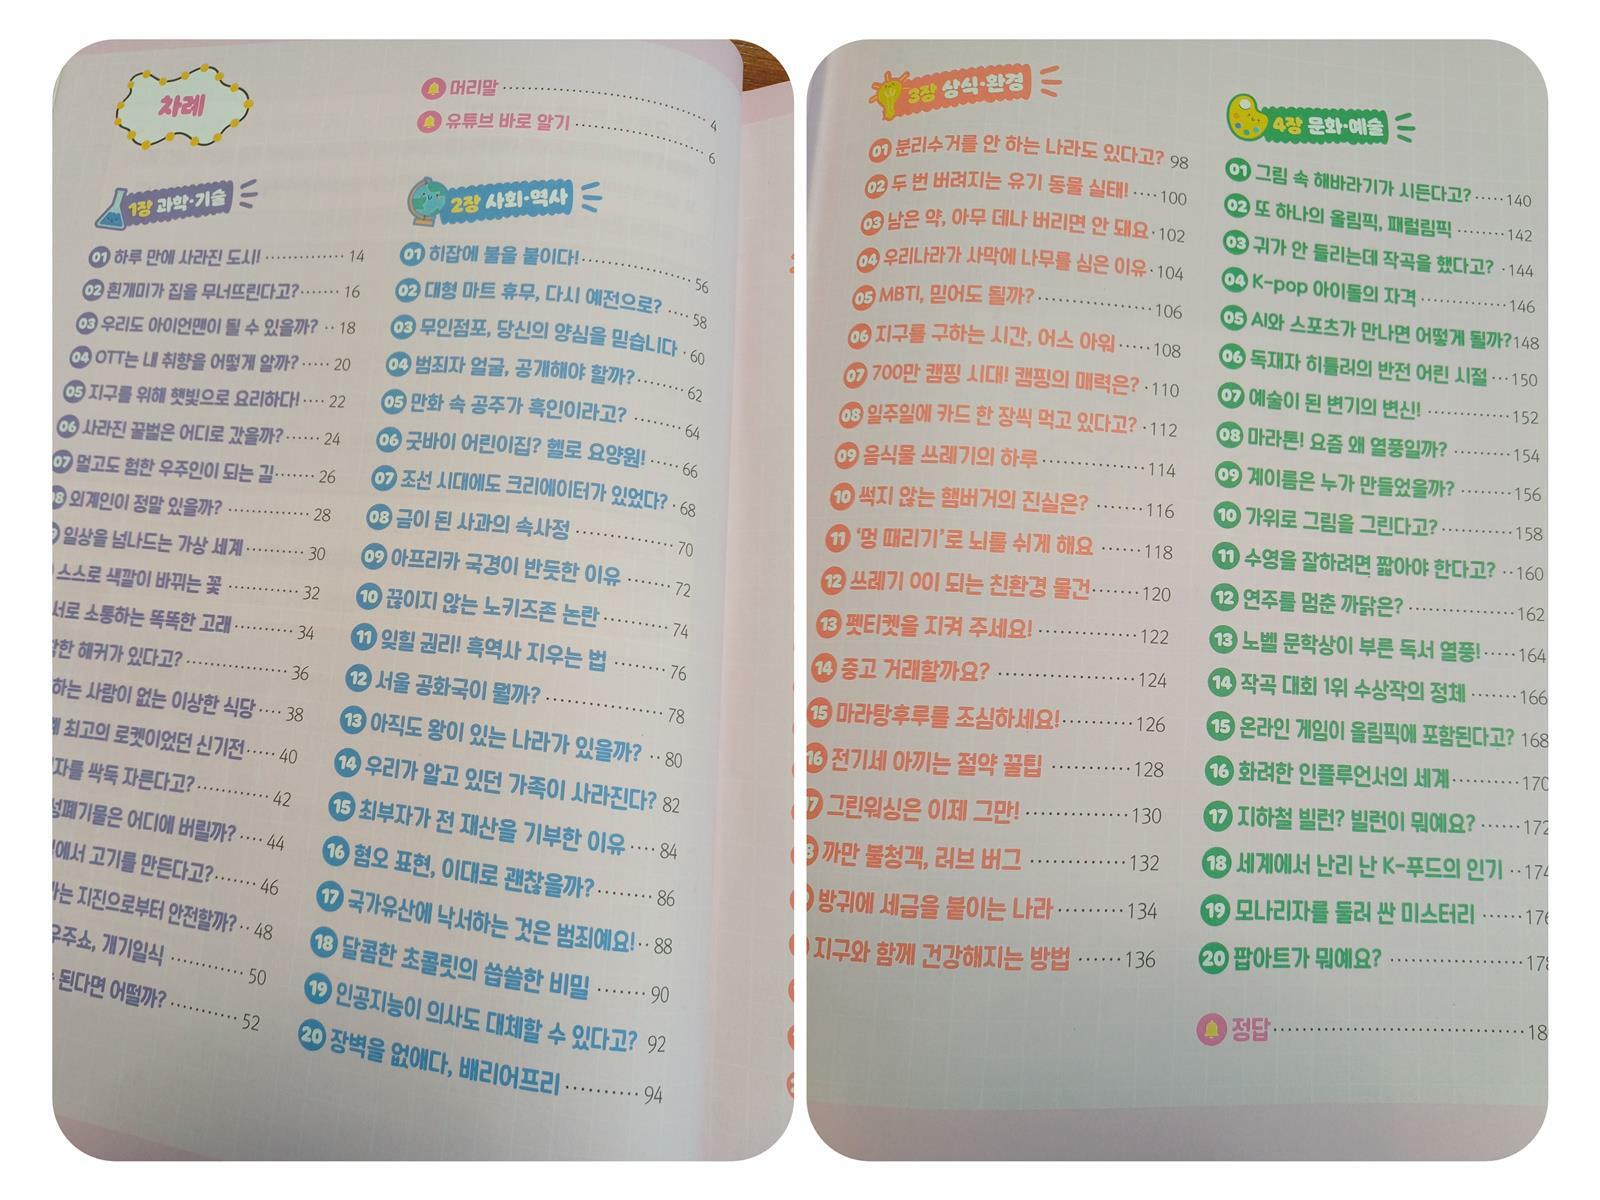 차례
머리말 4
유튜브 바로 알기 6
1장 과학·기술
01 하루 만에 사라진 도시! 14
02 흰개미가 집을 무너뜨린다고? 16
03 우리도 아이언맨이 될 수 있을까? 18
04 OTT는 내 취향을 어떻게 알까? 20
05 지구를 위해 햇빛으로 요리하다! 22
06 사라진 꿀벌은 어디로 갔을까? 24
07 멀고도 험한 우주인이 되는 길 26
08 외계인이 정말 있을까? 28
일상을 넘나드는 가상 세계 30
스스로 색깔이 바뀌는 꽃 32
서로 소통하는 똑똑한 고래 34
한 해커가 있다고? 36
하는 사람이 없는 이상한 식당 38
최고의 로켓이었던 신기전 40
자를 싹둑 자른다고? 42
성폐기물은 어디에 버릴까? 44
에서 고기를 만든다고? 46
는 지진으로부터 안전할까? 48
우주쇼, 개기일식 50
된다면 어떨까? 52
2장 사회·역사
01 히잡에 불을 붙이다! 56
02 대형 마트 휴무, 다시 예전으로? 58
03 무인점포, 당신의 양심을 믿습니다 60
04 범죄자 얼굴, 공개해야 할까? 62
05 만화 속 공주가 흑인이라고? 64
06 굿바이 어린이집? 헬로 요양원! 66
07 조선 시대에도 크리에이터가 있었다? 68
08 금이 된 사과의 속사정 70
09 아프리카 국경이 반듯한 이유 72
10 끊이지 않는 노키즈존 논란 74
11 잊힐 권리! 흑역사 지우는 법 76
12 서울 공화국이 뭘까? 78
13 아직도 왕이 있는 나라가 있을까? 80
14 우리가 알고 있던 가족이 사라진다? 82
15 최부자가 전 재산을 기부한 이유 84
16 혐오 표현, 이대로 괜찮을까? 86
17 국가유산에 낙서하는 것은 범죄예요! 88
18 달콤한 초콜릿의 씁쓸한 비밀 90
19 인공지능이 의사도 대체할 수 있다고? 92
20 장벽을 없애다, 배리어프리 94
3장 상식·환경
01 분리수거를 안 하는 나라도 있다고? 98
02 두 번 버려지는 유기 동물 실태! 100
03 남은 약, 아무 데나 버리면 안 돼요 102
04 우리나라가 사막에 나무를 심은 이유 104
05 MBTI, 믿어도 될까? 106
06 지구를 구하는 시간, 어스 아워 108
07 700만 캠핑 시대! 캠핑의 매력은? 110
08 일주일에 카드 한 장씩 먹고 있다고? 112
09 음식물 쓰레기의 하루 114
10 썩지 않는 햄버거의 진실은? 116
11 '멍 때리기'로 뇌를 쉬게 해요 118
12 쓰레기 0이 되는 친환경 물건 120
13 펫티켓을 지켜 주세요! 122
14 중고 거래할까요? 124
15 마라탕후루를 조심하세요! 126
16 전기세 아끼는 절약 꿀팁 128
17 그린워싱은 이제 그만! 130
까만 불청객, 러브 버그 132
방귀에 세금을 붙이는 나라 134
지구와 함께 건강해지는 방법 136
4장 문화·예술
01 그림 속 해바라기가 시든다고? 140
02 또 하나의 올림픽, 패럴림픽 142
03 귀가 안 들리는데 작곡을 했다고? 144
04 K-pop 아이돌의 자격 146
05 AI와 스포츠가 만나면 어떻게 될까? 148
06 독재자 히틀러의 반전 어린 시절 150
07 예술이 된 변기의 변신! 152
08 마라톤! 요즘 왜 열풍일까? 154
09 계이름은 누가 만들었을까? 156
10 가위로 그림을 그린다고? 158
11 수영을 잘하려면 짧아야 한다고? 160
12 연주를 멈춘 까닭은? 162
13 노벨 문학상이 부른 독서 열풍! 164
14 작곡 대회 1위 수상작의 정체 166
15 온라인 게임이 올림픽에 포함된다고? 168
16 화려한 인플루언서의 세계 170
17 지하철 빌런? 빌런이 뭐예요? 172
18 세계에서 난리 난 K-푸드의 인기 174
19 모나리자를 둘러 싼 미스터리 176
20 팝아트가 뭐예요? 178
정답 18